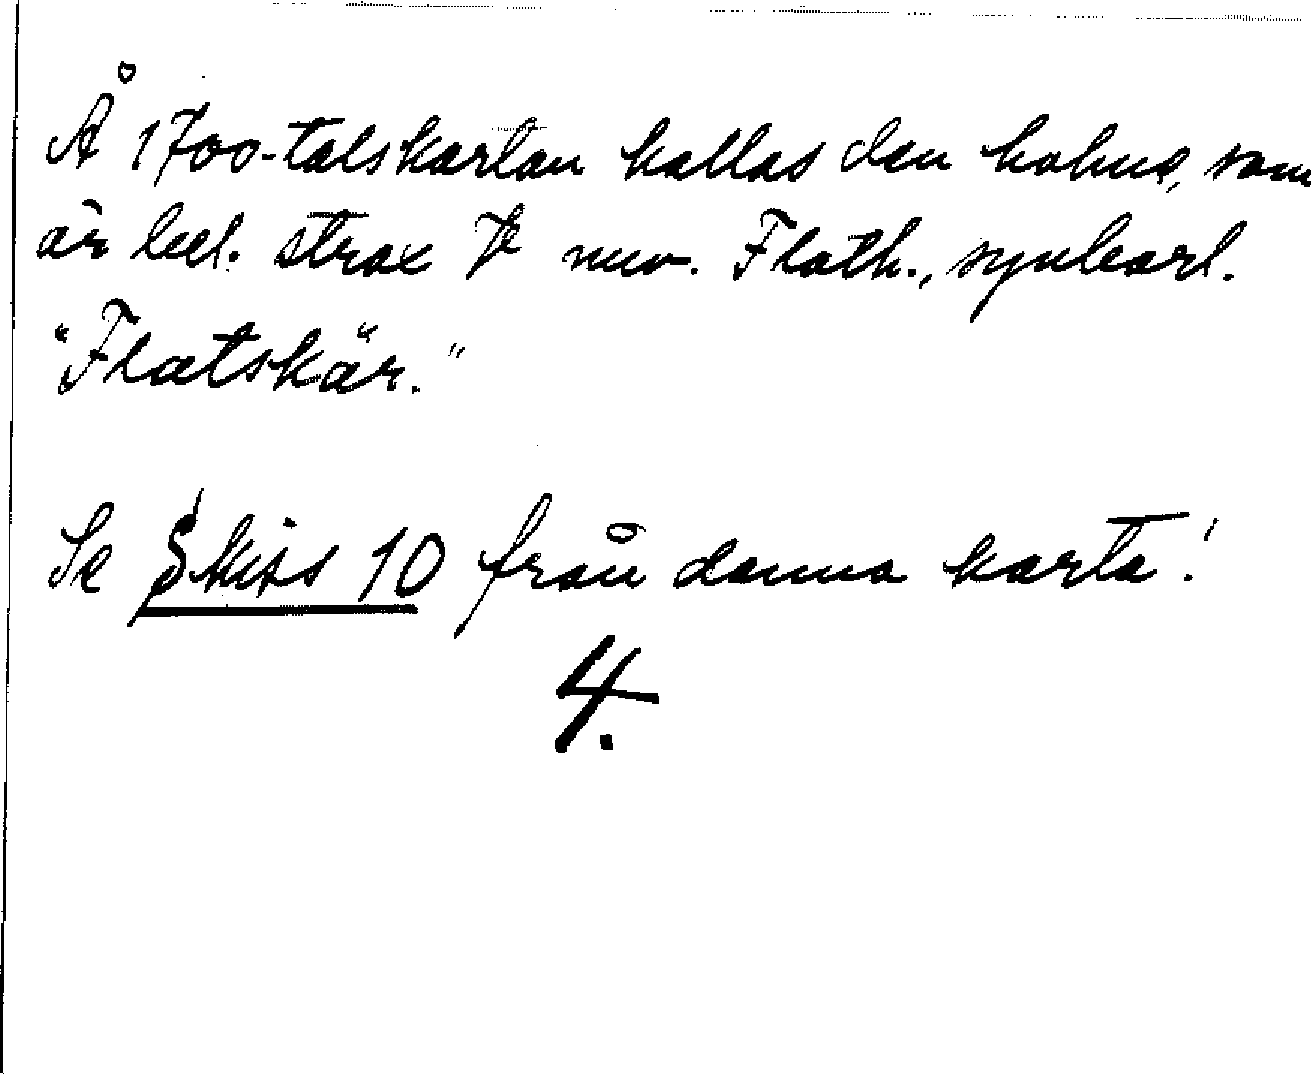 Å 1700-talskartan kallas den holme, som
är bel. strax nuv. Flath., synbarl.
"Flatskär."
Se Skiss 10 från denna karta!
4.